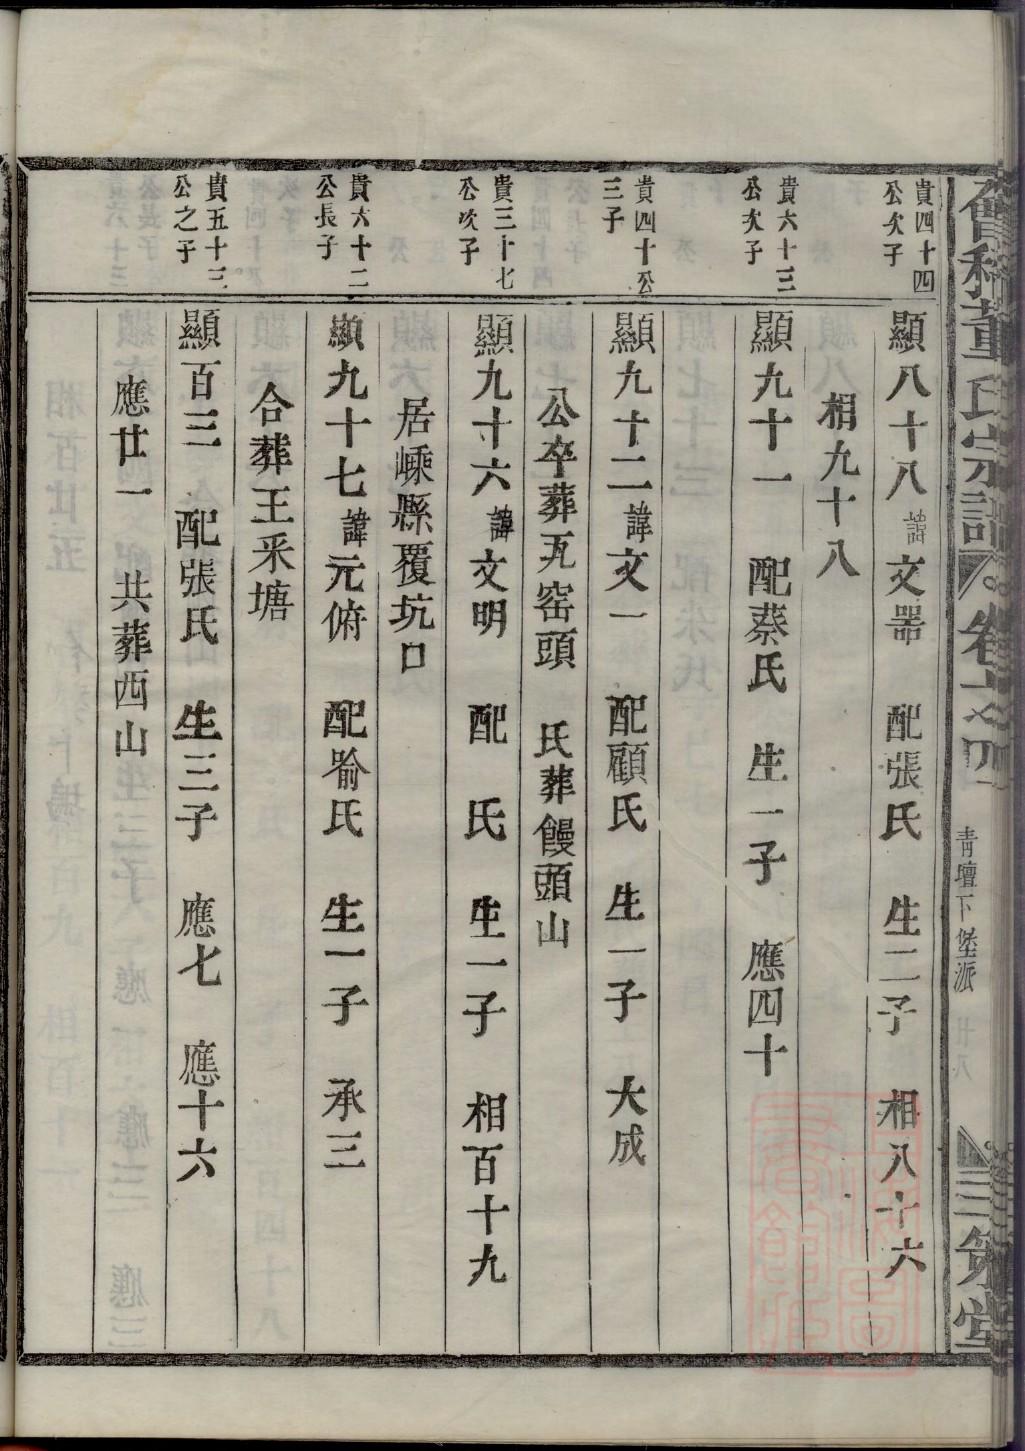 會稽董氏宗譜 卷六之四 青壇下堡派 廿八 三策堂
貴四十四
公次子
顯八十八 諱文噐 配張氏 生二子 相八十六
相九十八
貴六十三
公次子
顯九十一 配蔡氏 生一子 應四十
貴四十公
三子
顯九十二 諱文一 配顧氏 生一子 大成
公卒葬瓦窑頭 氏葬饅頭山
貴三十七
公次子
顯九十六 諱文明 配 氏 生一子 相百十九
居嵊縣覆坑口
貴六十二
公長子
顯九十七 諱元俯 配喻氏 生一子 承三
合葬王采塘
貴五十三
公之子
顯百三 配張氏 生三子 應七 應十六
應廿一 共葬西山